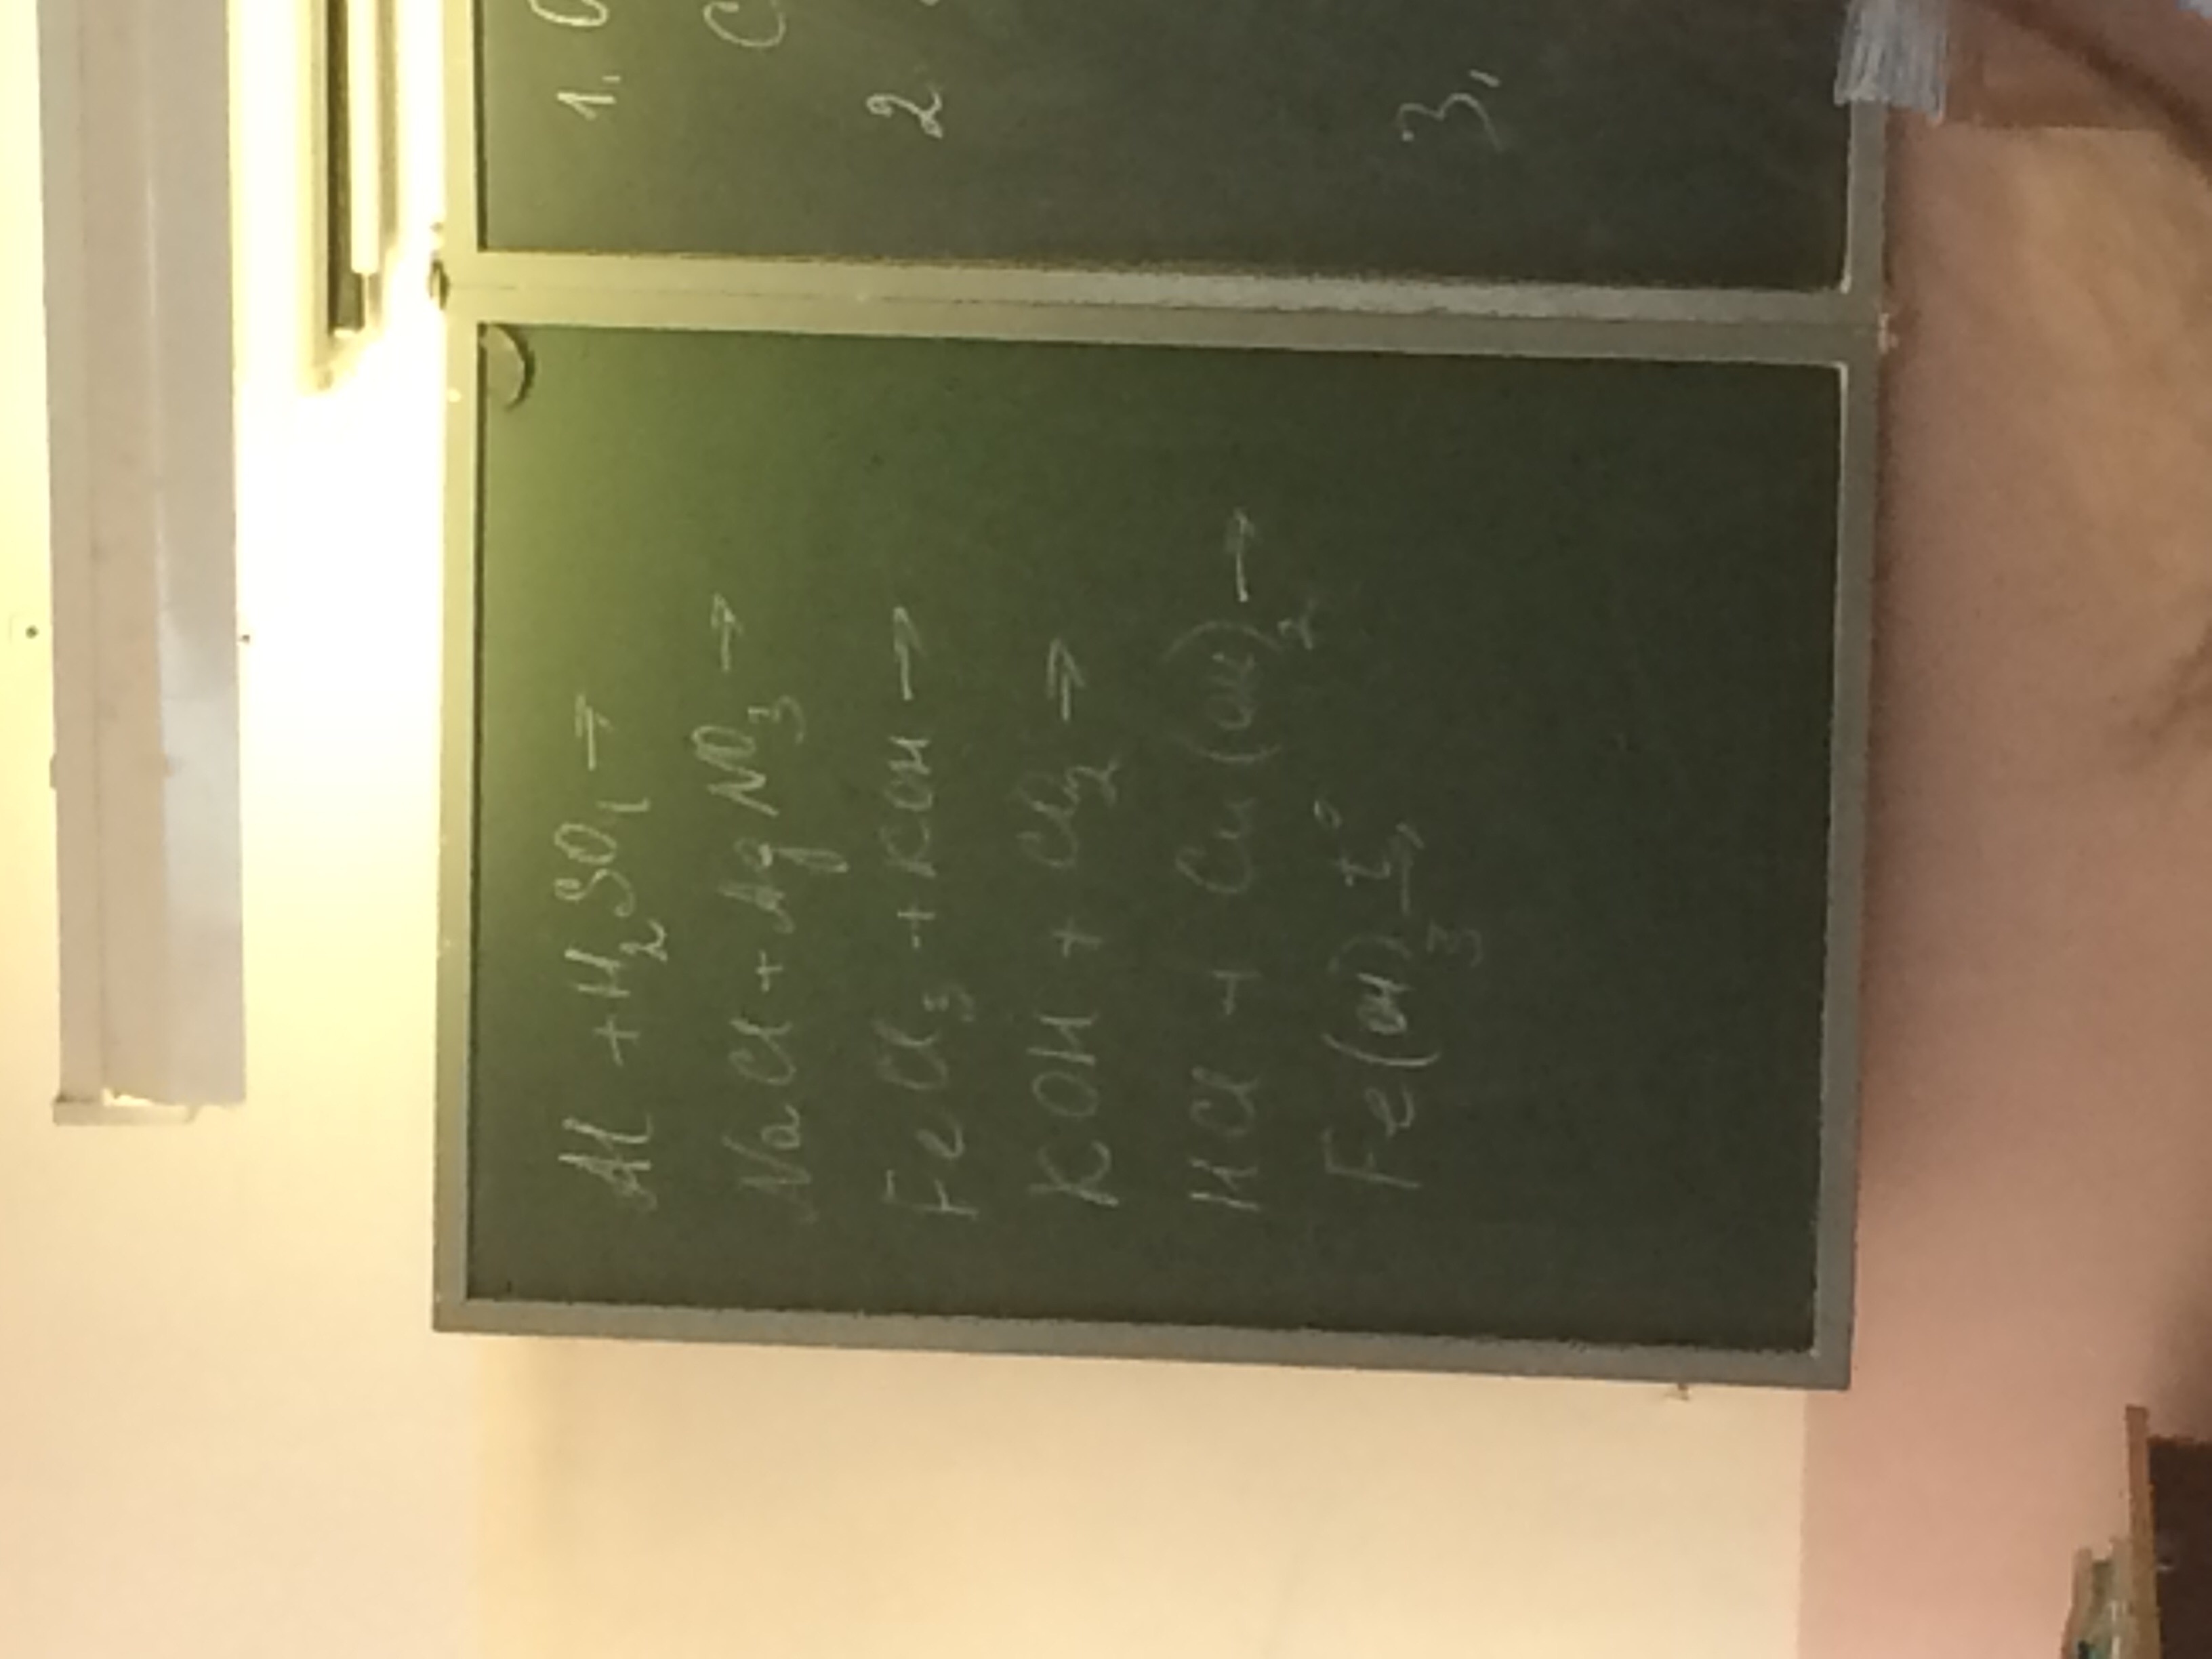 Al + H₂SO₄ →
NaCl + AgNO₃ →
FeCl₃ + KOH →
KOH + Cl₂ →
HCl + Cu(OH)₂ →
Fe(OH)₃ t° →
1.
2
3,